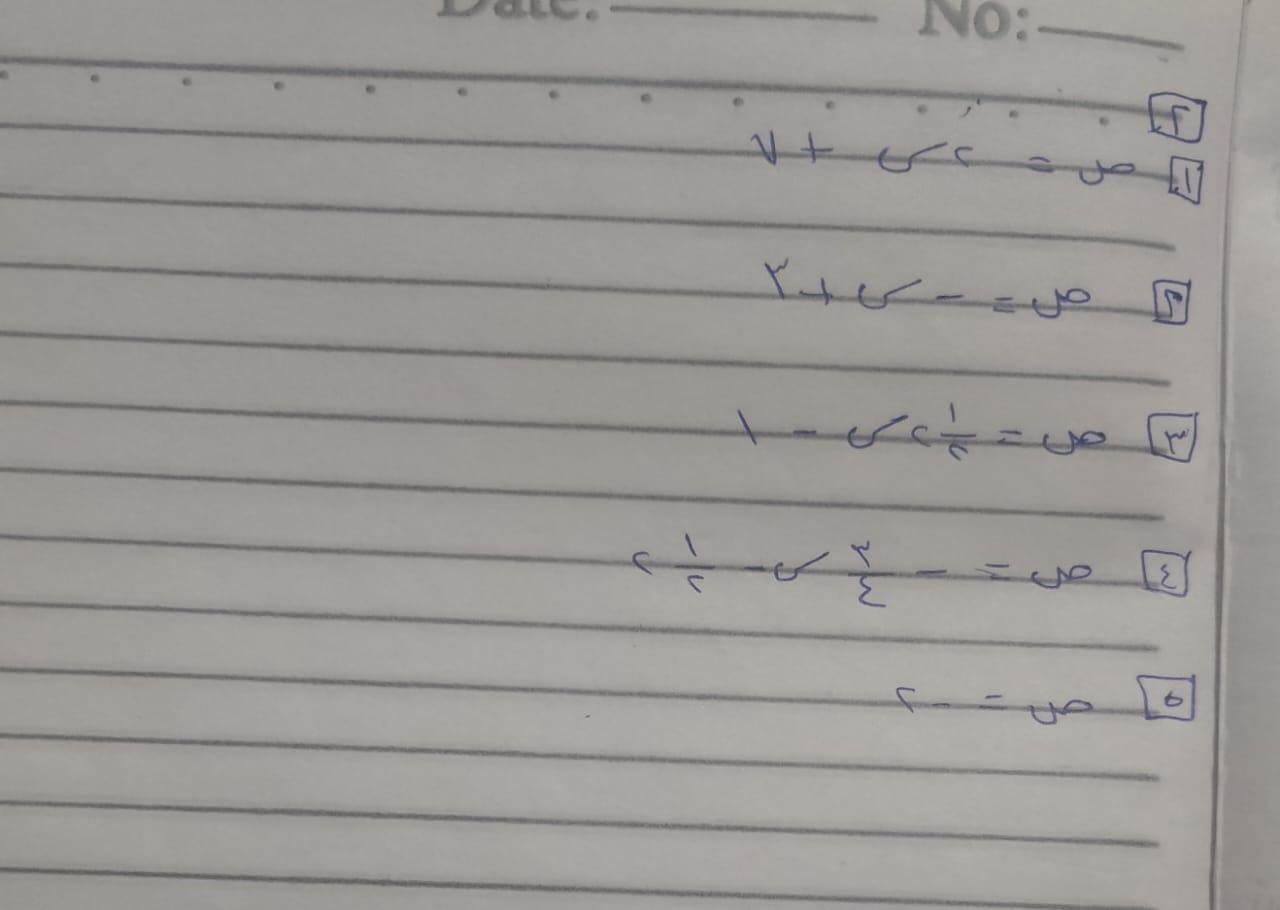 Date: No:
١ ص = ٢س + ٧
٢ ص = - س + ٣
٣ ص = ٢ ١/٢ س - ١
٤ ص = - ٣/٤ س - ٢ ١/٢
٥ ص = -٢